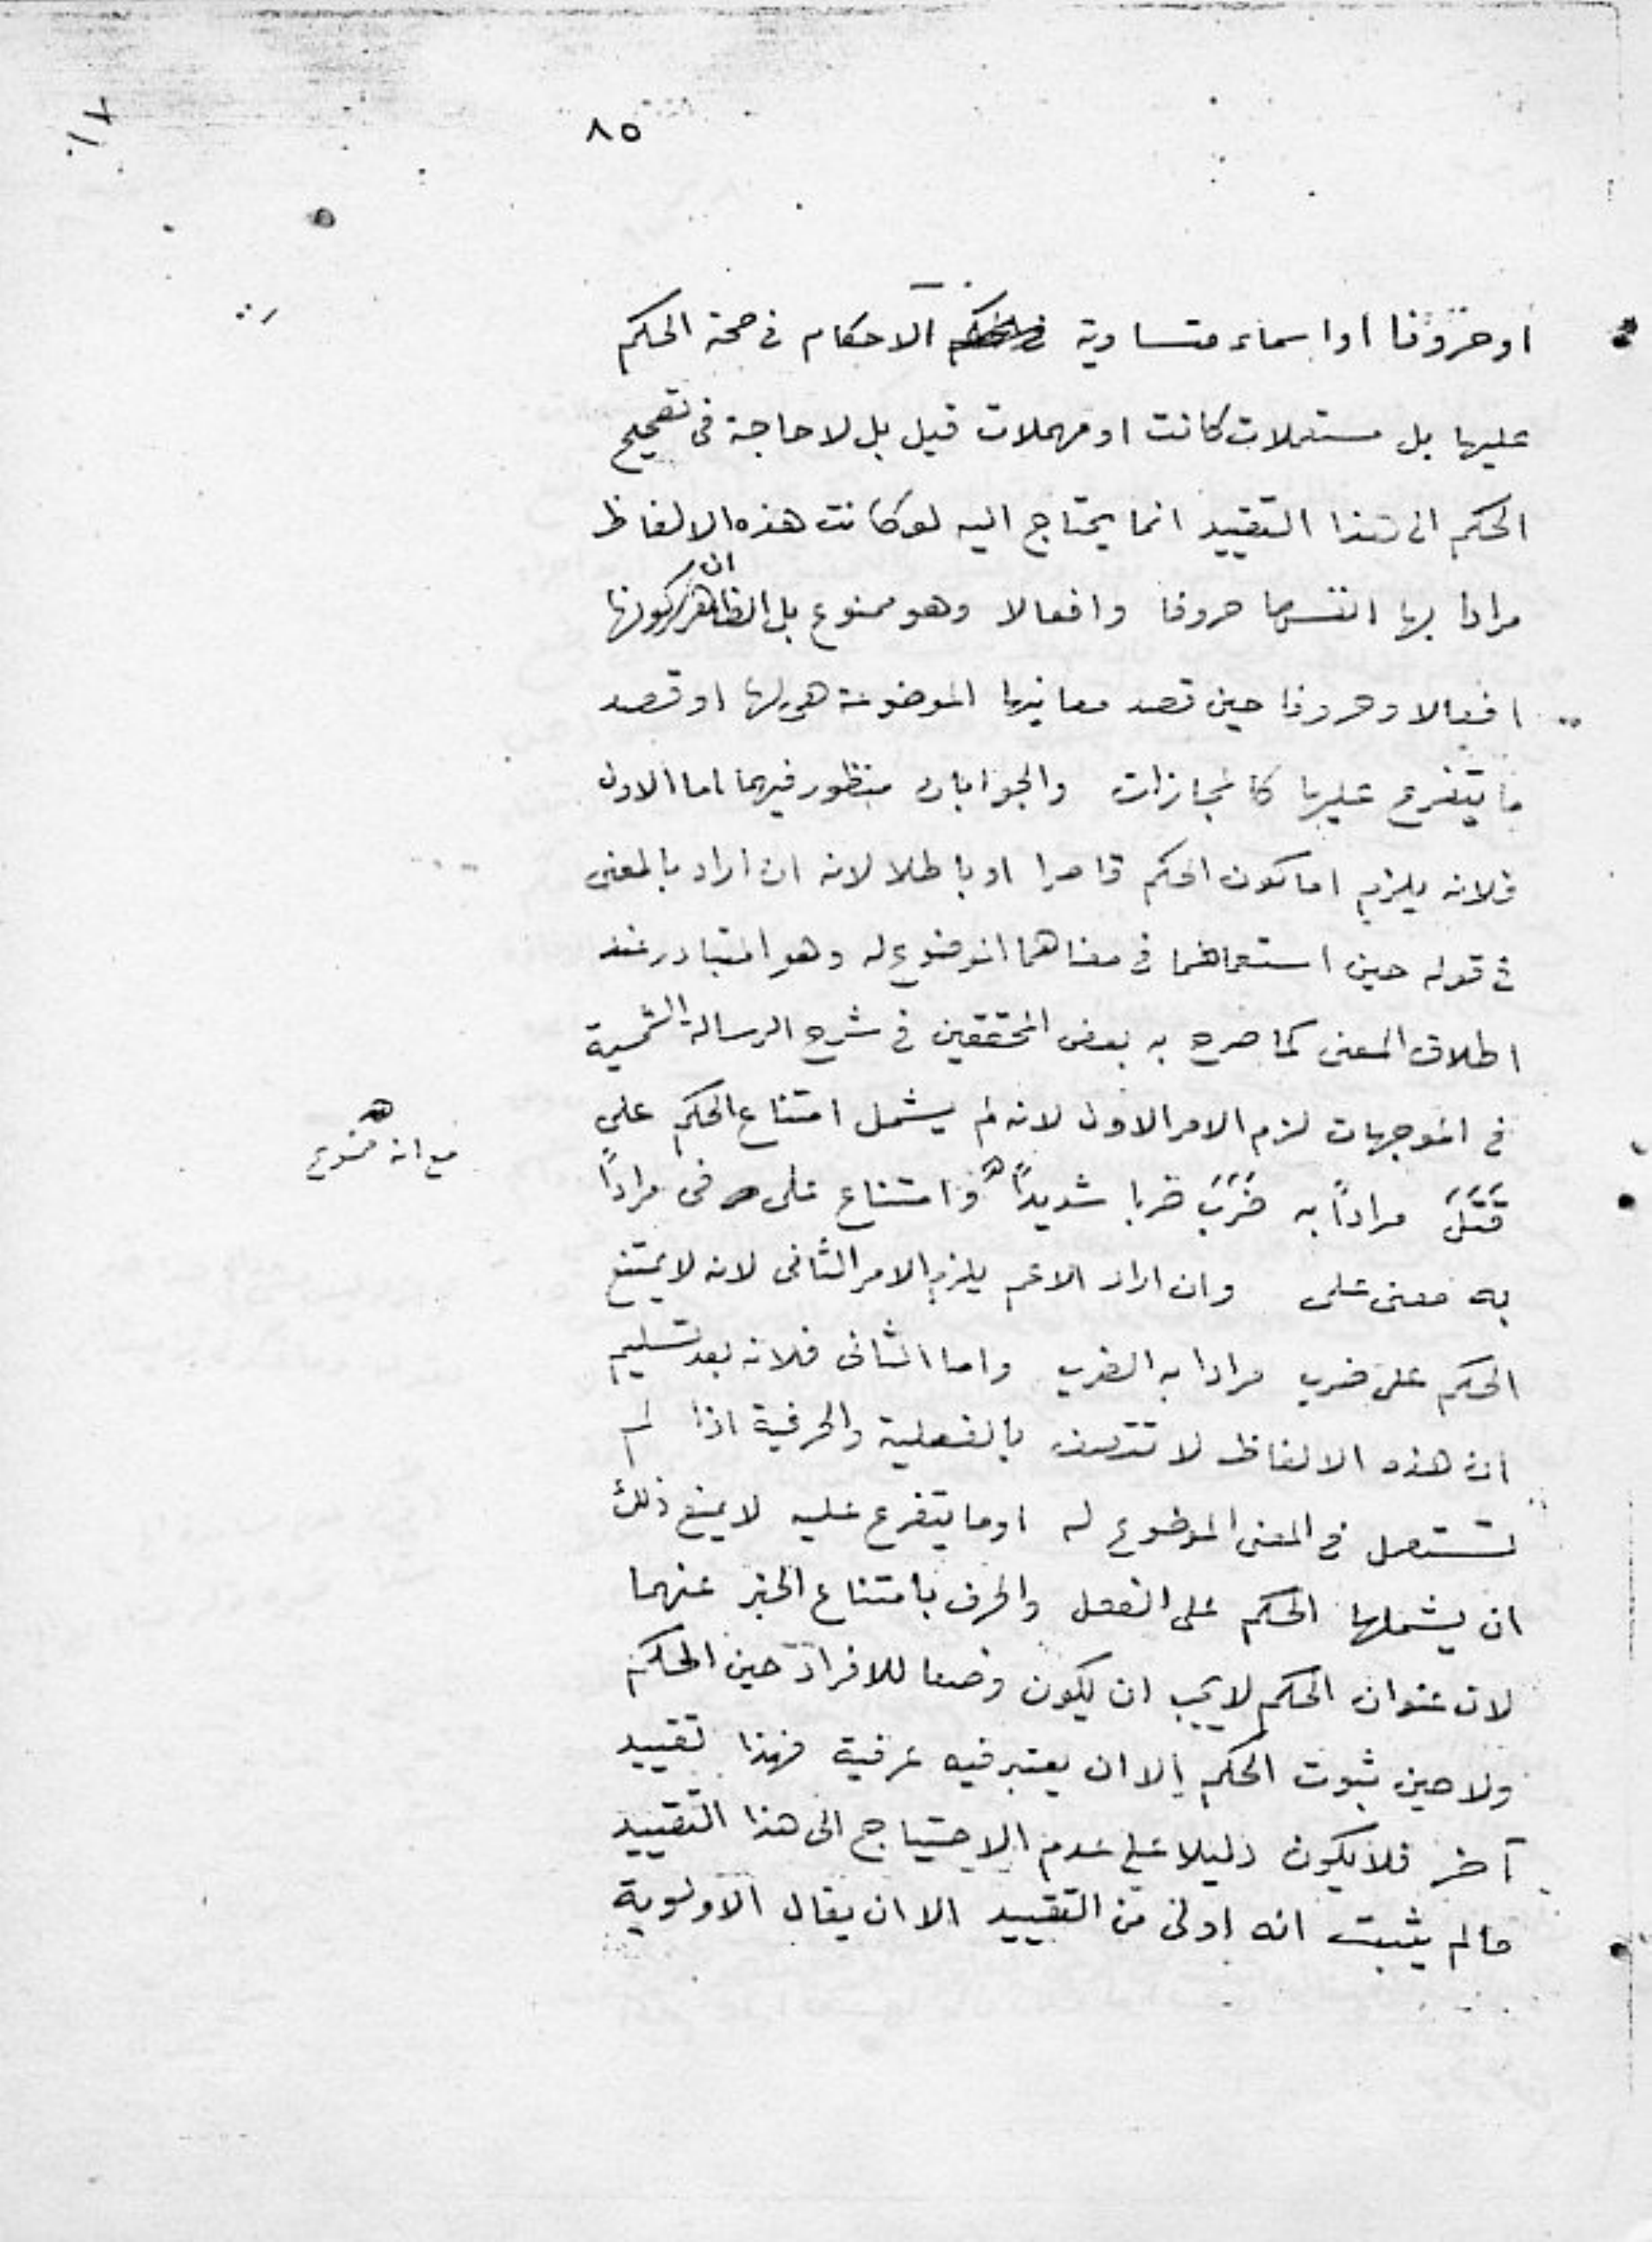 ٨٥
او حروفا او اسماء متساوية الاحكام فى صحة الحكم
عليها بل مستعملات كانت او مهملات قيل بل لا حاجة فى تصحيح
الحكم الى هذا التقييد انما يحتاج اليه لو كانت هذه الالفاظ
مرادا بها انفسها حروفا وافعالا وهو ممنوع بل الظاهر ان كونها
افعالا وحروفا حين قصد معانيها الموضوعة هى لها او قصد
ما يتفرع عليها كالمجازات والجوابان منظور فيهما اما الاول
فلانه يلزم اما كون الحكم قاصرا او باطلا لانه ان اراد بالمعنى
فى قوله حين استعمالهما فى معناهما الموضوع له وهو المتبادر عند
اطلاق المعنى كما صرح به بعض المحققين فى شرح الرسالة الشمسية
فى الموجهات لزم الامر الاول لانه لم يشمل امتناع الحكم على
قَتَلَ مراداً به ضَرَبَ ضربا شديداً وامتناع على فى مراداً
مع انه ممنوع
به معنى على وان اراد الاعم يلزم الامر الثانى لانه لا يمتنع
الحكم على ضرب مرادا به الضرب واما الثانى فلانه بعد تسليم
ان هذه الالفاظ لا تتصف بالفعلية والحرفية اذا لم
تستعمل فى المعنى الموضوع له او ما يتفرع عليه لا يمنع ذلك
ان يشملها الحكم على الفعل والحرف بامتناع الخبر عنهما
لان عنوان الحكم لا يجب ان يكون وصفا للافراد حين الحكم
ولا حين ثبوت الحكم الا ان يعتبر فيه عرفية فهذا تقييد
آخر فلا يكون دليلا على عدم الاحتياج الى هذا التقييد
ما لم يثبت انه اولى من التقييد الا ان يقال الاولوية